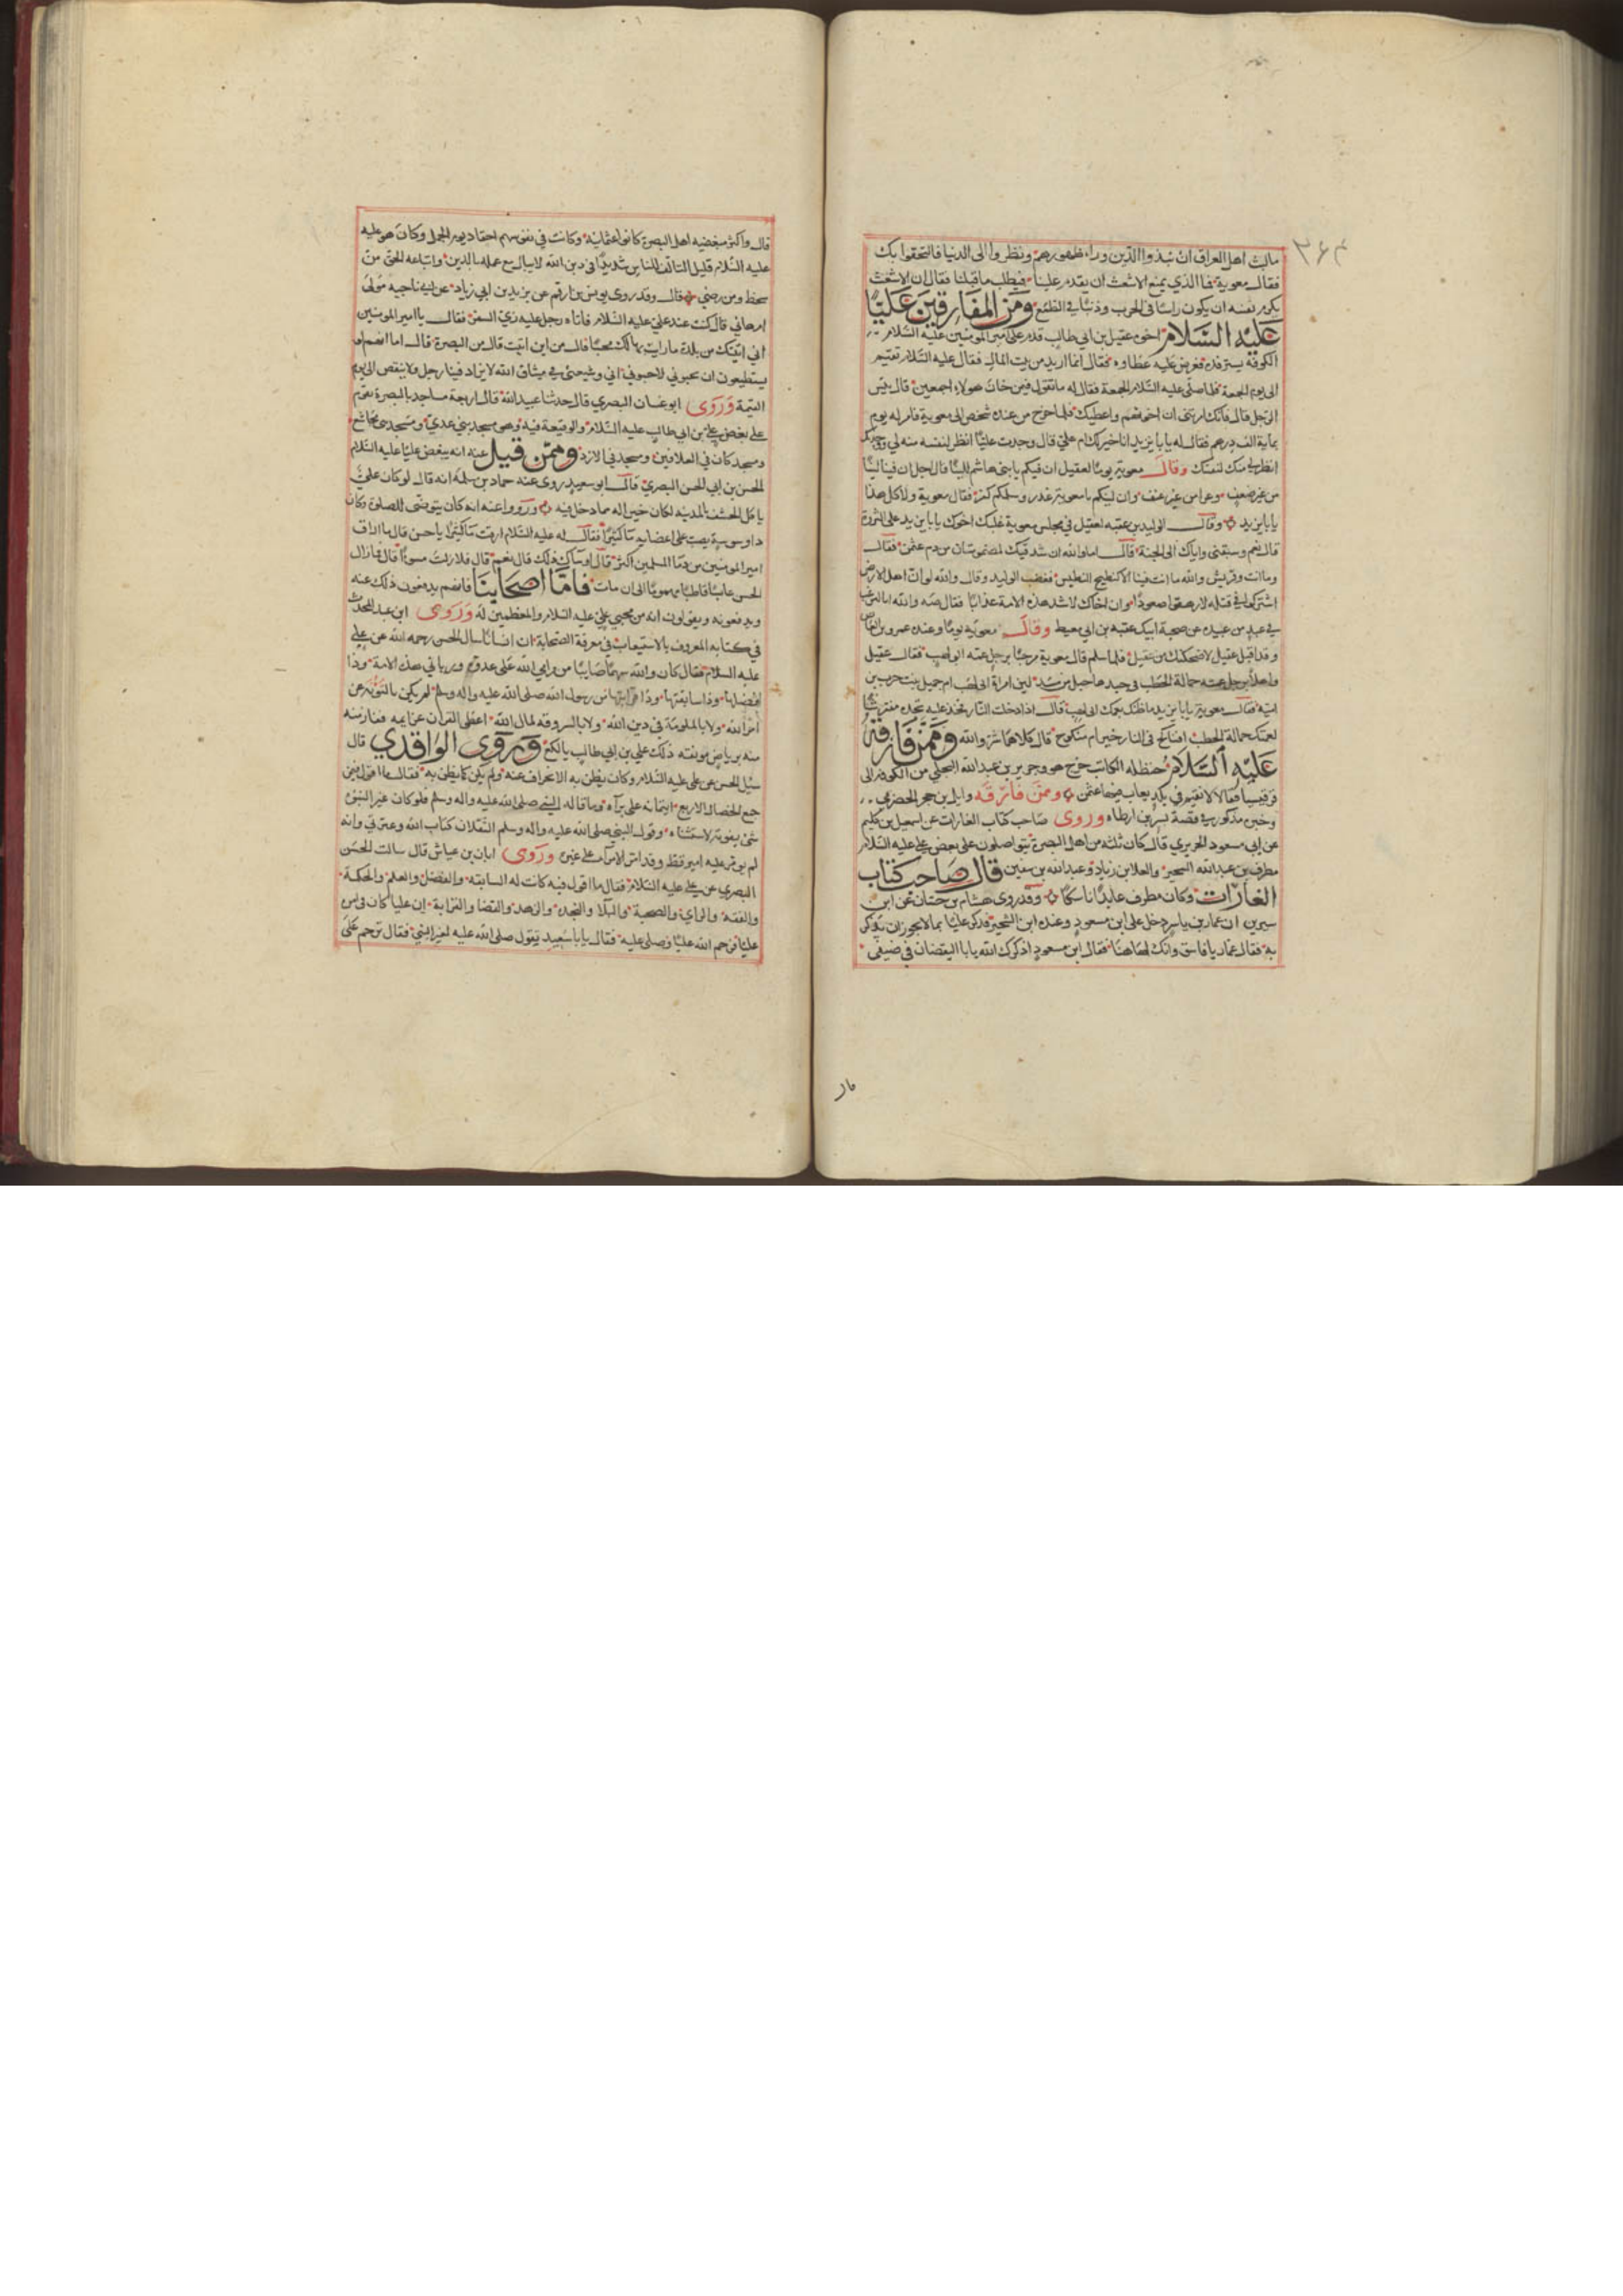 ٣۶۴
مالت اهل العراق ان نبذوا الدين وراء ظهورهم ونظروا الى الدنيا فالتحقوا بك
فقال معوية فما الذي يمنع الاشعث ان يقدم علينا فيطلب ما قبلنا فقال ان الاشعث
يكرم نفسه ان يكون راسًا في الحرب وذنبًا في الطمع ومن المفارقين عليًا
عليه السلام اخوه عقيل بن ابي طالب قدم على امير المومنين عليه السلام
الكوفة يسترفده فعرض عليه عطاوه فقال انما اريد من بيت المال فقال عليه السلام تقيم
الى يوم الجمعة فلما صلى عليه السلام الجمعة فقال له ما تقول فيمن خان هولاء اجمعين قال بئس
الرجل قال فانك امرتني ان اخونهم واعطيك فلما خرج من عنده شخص الى معوية فامر له يوم
بماية الف درهم فقال له يابا يزيد انا خير لك ام علي قال وجدت عليًا انظر لنفسه منه لي ووجدتك
انظر لي منك لنفسك وقال معوية يومًا لعقيل ان فيكم يا بني هاشم للينًا قال اجل ان فينا لينًا
من غير ضعف وعزا من غير عنف وان لينكم يا معوية غدر وسلمكم كفر فقال معوية ولا كل هذا
يابا يزيد وقال الوليد بن عقبه لعقيل في مجلس معوية غلبك اخوك يابا يزيد على الثروة
قال نعم وسبقني واياك الى الجنة قال اما والله ان شدقيك لمضمومتان من دم عثمن فقال
وما انت وقريش والله ما انت فينا الا كنطيح التيس فغضب الوليد وقال والله لو ان اهل الارض
اشتركوا في قتله لارهقوا صعودًا وان اخاك لاشد هذه الامة عذابًا فقال صه والله انا لنرغب
في عبد من عبيده عن صحبة ابيك عقبه بن ابي معيط وقال معوية يومًا وعنده عمرو بن العاص
وقد اقبل عقيل لاضحكنك من عقيل فلما سلم قال معوية مرحبًا برجل عمه ابو لهب فقال عقيل
واهلًا برجل عمته حمالة الحطب في جيدها حبل من مسد لان امراة ابي لهب ام جميل بنت حرب بن
اميه فقال معوية يابا يزيد ما ظنك بعمك ابي لهب قال اذا دخلت النار فخذ عليه تجده مفترشًا
لعمتك حمالة الحطب افناكح في النار خير ام منكوح قال كلاهما شر والله وممن فارقه
عليه السلام حنظله الكاتب خرج هو وجرير بن عبد الله البجلي من الكوفه الى
قرقيسيا فقالا لا نقيم في بلد يعاب فيها عثمن وممن فارقه وايل بن حجر الحضرمي
وخبره مذكور في قصة بسر بن ارطاه وروى صاحب كتاب الغارات عن اسمعيل بن حكيم
عن ابي مسعود الحريري قال كان ثلثه من اهل البصرة يتواصلون على بغض علي عليه السلام
مطرف بن عبد الله الشخير والعلا بن زياد وعبد الله بن سقين قال صاحب كتاب
الغارات وكان مطرف عابدًا ناسكًا وقد روى هشام بن حسان عن ابن
سيرين ان عمار بن ياسر دخل على ابن مسعود وعنده ابن الشخير فذكر عليًا بما لا يجوز ان يذكر
به فقال عمار يا فاسق وانك لهاهنا فقال ابن مسعود اذكرك الله يابا اليقضان في ضيفي
قال
قال واكثر مبغضيه اهل البصرة كانوا عثمانية وكانت في نفوسهم احقاد يوم الجمل وكان هو عليه
عليه السلام قليل التالف للناس شديدًا في دين الله لا يبالي مع عمله بالدين واتباعه الحق من
سخط ومن رضي قال وقد روى يونس بن ارقم عن يزيد بن ابي زياد عن ابي ناجيه مولى
ام هاني قال كنت عند علي عليه السلام فاتاه رجل عليه زي السفر فقال يا امير المومنين
اني اتيتك من بلدة ما رايت بها لك محبًا قال من اين اتيت قال من البصرة قال اما انهم لو
يستطيعون ان يحبوني لاحبوني اني وشيعتي في ميثاق الله لا يزاد فينا رجل ولا ينقص الى يوم
القيمة وروى ابو غسان البصري قال حدثنا عبيد الله قال اربعة مساجد بالبصرة تقوم
على بغض علي بن ابي طالب عليه السلام والوقيعة فيه وهي مسجد بني عدي ومسجد بني مجاشع
ومسجد كان في العلافين ومسجد في الازد وممن قيل عنه انه يبغض عليًا عليه السلام
الحسن بن ابي الحسن البصري قال ابو سعيد روى عنه حماد بن سلمه انه قال لو كان علي
ياكل الحشف بالمدينه لكان خير له مما دخل فيه ورووا عنه انه كان يتوضى للصلوة وكان
ذا وسوسة يصب على اعضايه ماء كثيرًا فقال له عليه السلام ارقت ماء كثيرًا يا حسن قال ما اراق
امير المومنين من دما المسلمين اكثر قال اوساءك ذلك قال نعم قال فلا زلت مسوءًا قال فما زال
الحسن عابسًا قاطبًا مهمومًا الى ان مات فاما اصحابنا فانهم يدفعون ذلك عنه
ويدفعونه ويقولون انه من محبي علي عليه السلام والمعظمين له وروى ابن عبد المحدث
في كتابه المعروف بالاستيعاب في معرفة الصحابة ان انسانًا سال الحسن رحمه الله عن علي
عليه السلام فقال كان والله سهمًا صايبًا من مرامي الله على عدوه ورباني هذه الامة وذا
افضلها وذا سابقتها وذا قرابتها من رسول الله صلى الله عليه واله وسلم لم يكن بالنومة عن
امر الله ولا بالملومة في دين الله ولا بالسروقة لمال الله اعطى القران عزايمه ففاز منه
منه برياض مونقه ذلك علي بن ابي طالب يا لكع وروى الواقدي قال
سئل الحسن عن علي عليه السلام وكان يظن به الانحراف عنه ولم يكن كما يظن به فقال ما اقول فيمن
جمع الخصال الاربع ايتمانه على براه وما قاله النبي صلى الله عليه واله وسلم فلو كان غير النبوه
شيء يفوته لاستثناه وقول النبي صلى الله عليه واله وسلم الثقلان كتاب الله وعترتي وانه
لم يومر عليه امير قط وقد امرت الامراء على غيره وروى ابان بن عياش قال سالت الحسن
البصري عن علي عليه السلام فقال ما اقول فيه كانت له السابقه والفضل والعلم والحكمة
والفقه والراي والصحبة والبلا والنجده والزهد والقضا والقرابة إن عليا كان في امره
عليًا فرحم الله عليًا وصلى عليه فقال يابا سعيد تقول صلى الله عليه لغير النبي فقال ترحم على